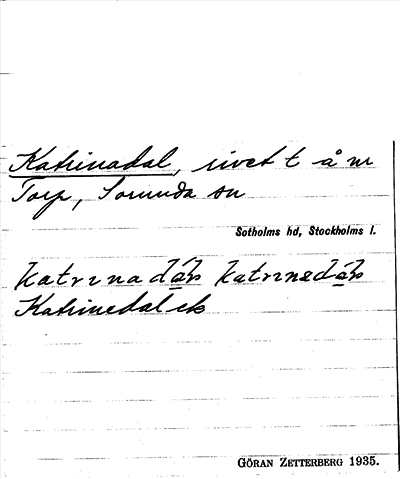 Katrinadal, rivet t å nr
Torp, Sorunda sn
Sotholms hd, Stockholms l.
katrinadáɽs katrinedáɽs
Katrinedal ek
GÖRAN ZETTERBERG 1935.